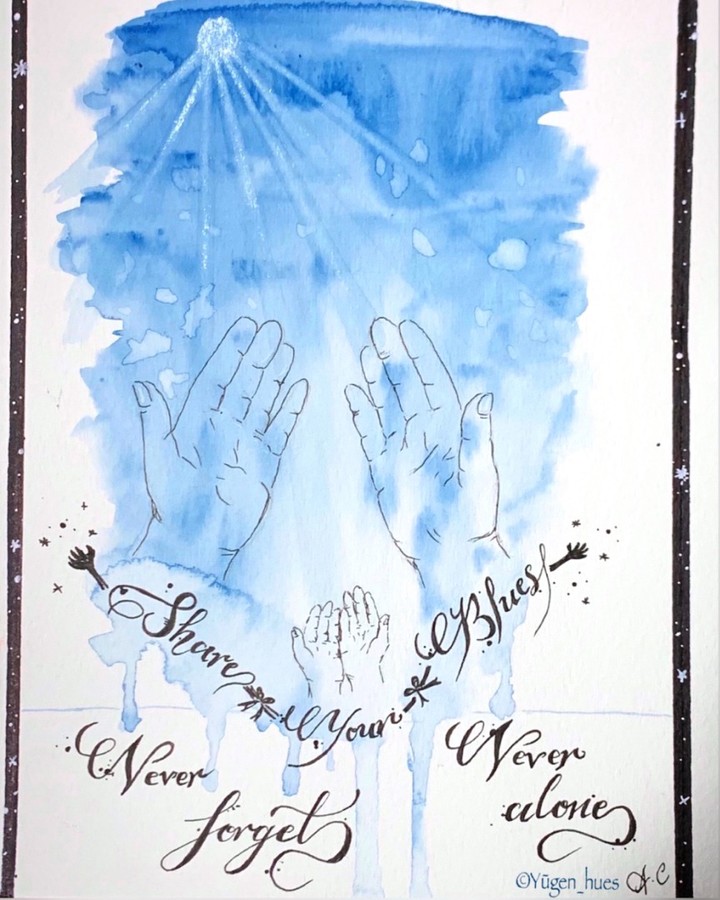 Share Your Blues
Never
forget
Never
alone
©Yūgen_hues A.C